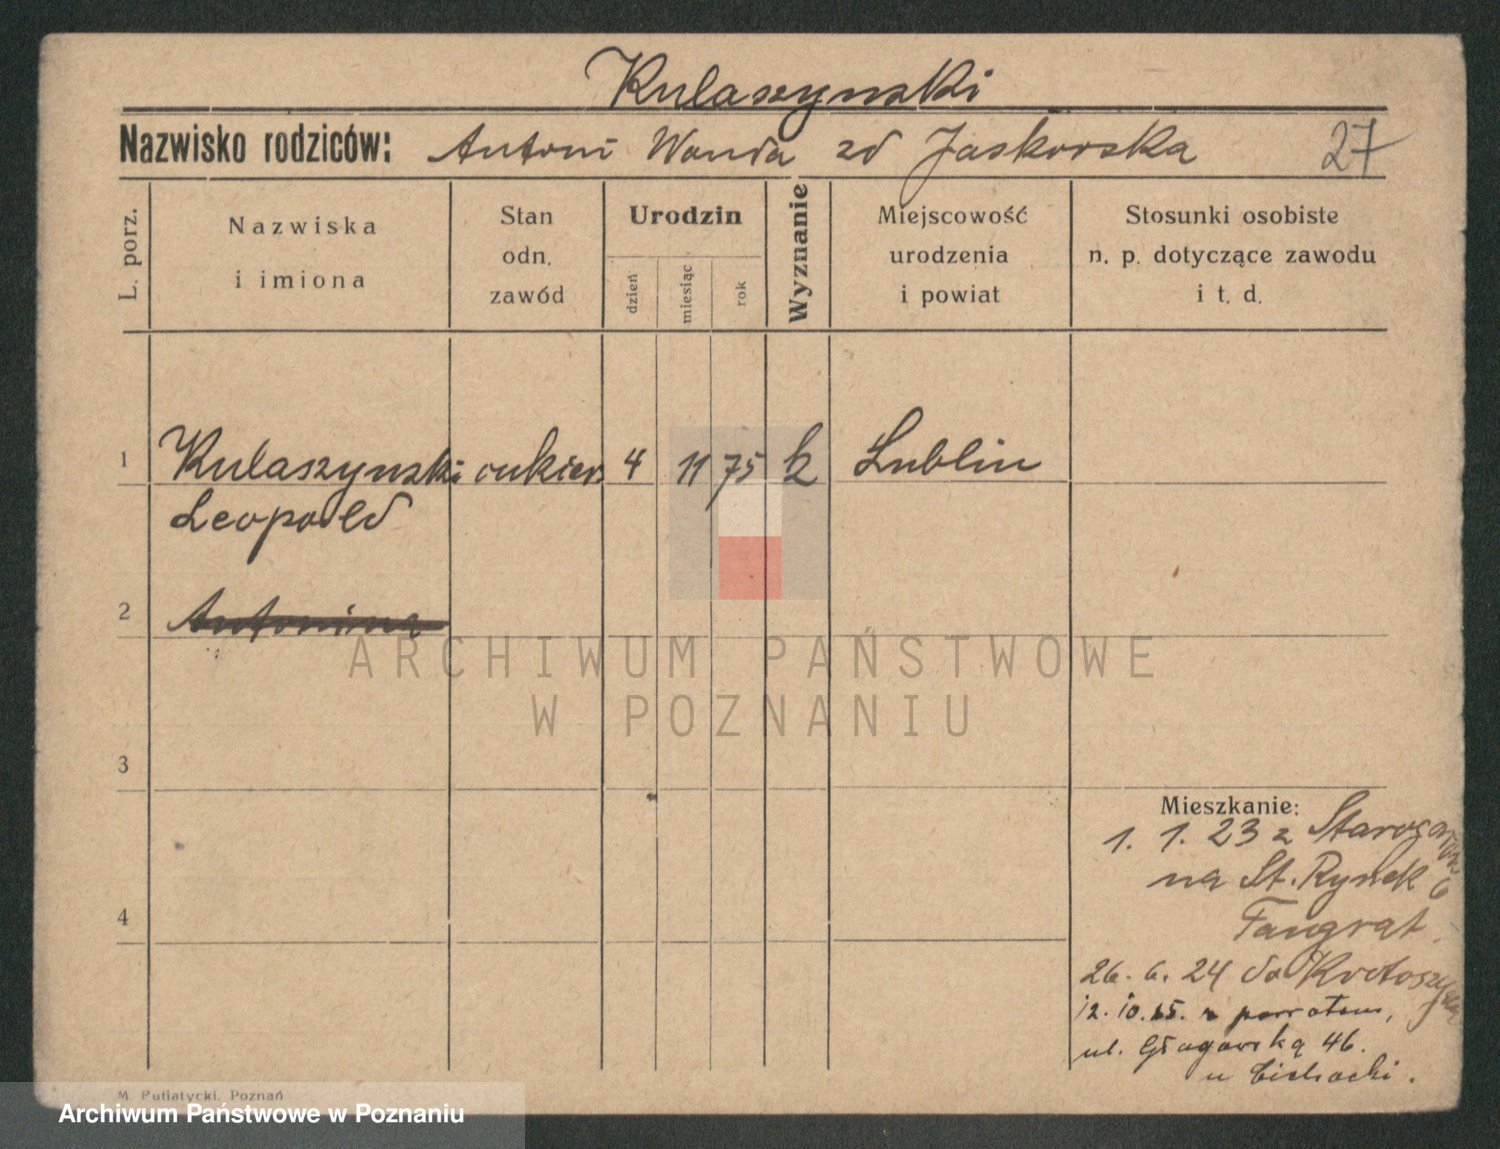 Kulaszynski
Nazwisko rodziców: Antoni Wanda zd Jaskorska 27
L. porz.
Nazwiska
i imiona
Stan
odn.
zawód
Urodzin
dzień
miesiąc
rok
Wyznanie
Miejscowość
urodzenia
i powiat
Stosunki osobiste
n. p. dotyczące zawodu
i t. d.
1 Kulaszynski cukier 4 11 75 k Lublin
Leopold
2 Antonina
ARCHIWUM PAŃSTWOWE
W POZNANIU
3
Mieszkanie:
1. 1. 23 z
na St. Rynek 6
4
26. 6. 24 do
12. 10. z powrotem,
ul. Głogowską 46.
u
M. Putiatycki, Poznań
Archiwum Państwowe w Poznaniu